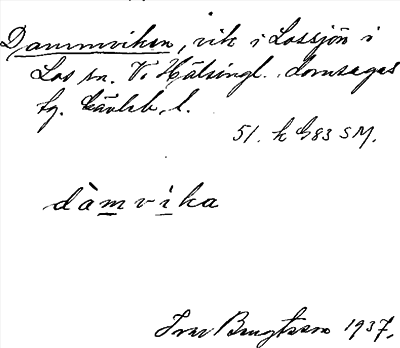 Dammviken, vik i Lossjön i
Los sn. V. Hälsingl. domsagas
tg. Gävleb. l.
51. k G83 SM.
dàmvika
Ivar Bengtsson 1937.